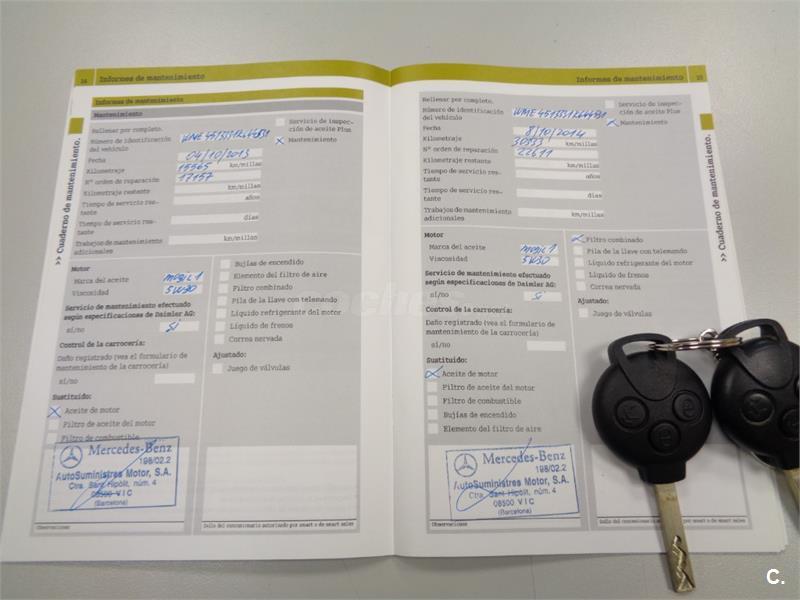 14 Informes de mantenimiento
Informes de mantenimiento
Mantenimiento
Rellenar por completo.
Número de identificación
del vehículo
Fecha 04/10/2013
Kilometraje 15565 km/millas
Nº orden de reparación 17157
Kilometraje restante km/millas
Tiempo de servicio res-
tante años
Tiempo de servicio res-
tante días
Trabajos de mantenimiento
adicionales km/millas
Servicio de inspec-
ción de aceite Plus
X Mantenimiento
>> Cuaderno de mantenimiento.
Motor
Marca del aceite Mobil 1
Viscosidad 5W30
Servicio de mantenimiento efectuado
según especificaciones de Daimler AG:
sí/no Si
Control de la carrocería:
Daño registrado (vea el formulario de
mantenimiento de la carrocería)
sí/no
Sustituido:
X Aceite de motor
Filtro de aceite del motor
Filtro de combustible
Bujías de encendido
Elemento del filtro de aire
Filtro combinado
Pila de la llave con telemando
Líquido refrigerante del motor
Líquido de frenos
Correa nervada
Ajustado:
Juego de válvulas
Mercedes-Benz
198/02.2
AutoSuministres Motor, S.A.
Ctra. Sant Hipòlit, núm. 4
08500 VIC
(Barcelona)
Observaciones
Sello del concesionario autorizado por smart o de smart sales
Informes de mantenimiento 15
Rellenar por completo.
Número de identificación
del vehículo
Fecha 8/10/2014
Kilometraje 30333 km/millas
Nº orden de reparación 22611
Kilometraje restante km/millas
Tiempo de servicio res-
tante años
Tiempo de servicio res-
tante días
Trabajos de mantenimiento
adicionales km/millas
Servicio de inspec-
ción de aceite Plus
X Mantenimiento
>> Cuaderno de mantenimiento.
Motor
Marca del aceite Mobil 1
Viscosidad 5W30
Servicio de mantenimiento efectuado
según especificaciones de Daimler AG:
sí/no Si
Control de la carrocería:
Daño registrado (vea el formulario de
mantenimiento de la carrocería)
sí/no
Sustituido:
X Aceite de motor
Filtro de aceite del motor
Filtro de combustible
Bujías de encendido
Elemento del filtro de aire
X Filtro combinado
Pila de la llave con telemando
Líquido refrigerante del motor
Líquido de frenos
Correa nervada
Ajustado:
Juego de válvulas
Mercedes-Benz
198/02.2
AutoSuministres Motor, S.A.
Ctra. Sant Hipòlit, núm. 4
08500 VIC
(Barcelona)
Observaciones
Sello del concesionario autorizado por smart o de smart sales
coches
C.